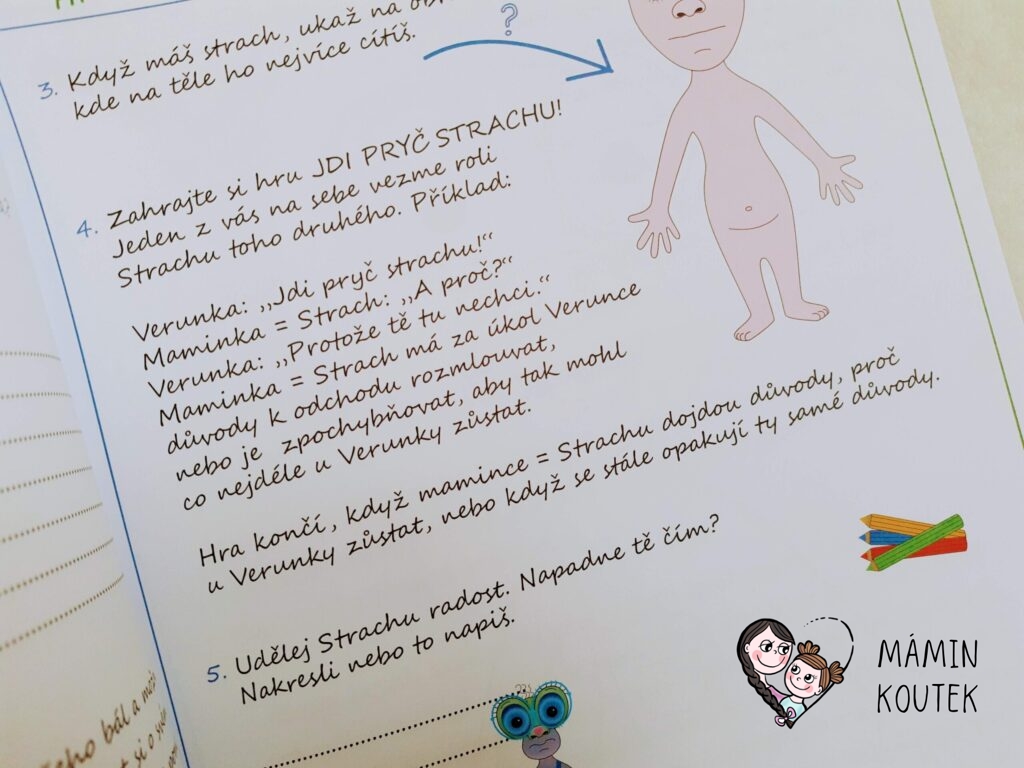 3. Když máš strach, ukaž na
kde na těle ho nejvíce cítíš.
?
4. Zahrajte si hru JDI PRYČ STRACHU!
Jeden z vás na sebe vezme roli
Strachu toho druhého. Příklad:
Verunka: ,,Jdi pryč strachu!“
Maminka = Strach: ,,A proč?“
Verunka: ,,Protože tě tu nechci.“
Maminka = Strach má za úkol Verunce
důvody k odchodu rozmlouvat,
nebo je zpochybňovat, aby tak mohl
co nejdéle u Verunky zůstat.
Hra končí, když mamince = Strachu dojdou důvody, proč
u Verunky zůstat, nebo když se stále opakují ty samé důvody.
5. Udělej Strachu radost. Napadne tě čím?
Nakresli nebo to napiš.
bál a
si o
MÁMIN
KOUTEK